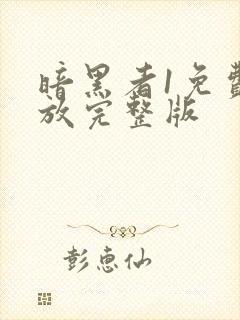 暗黑者1免费
放完整版
彭惠仙